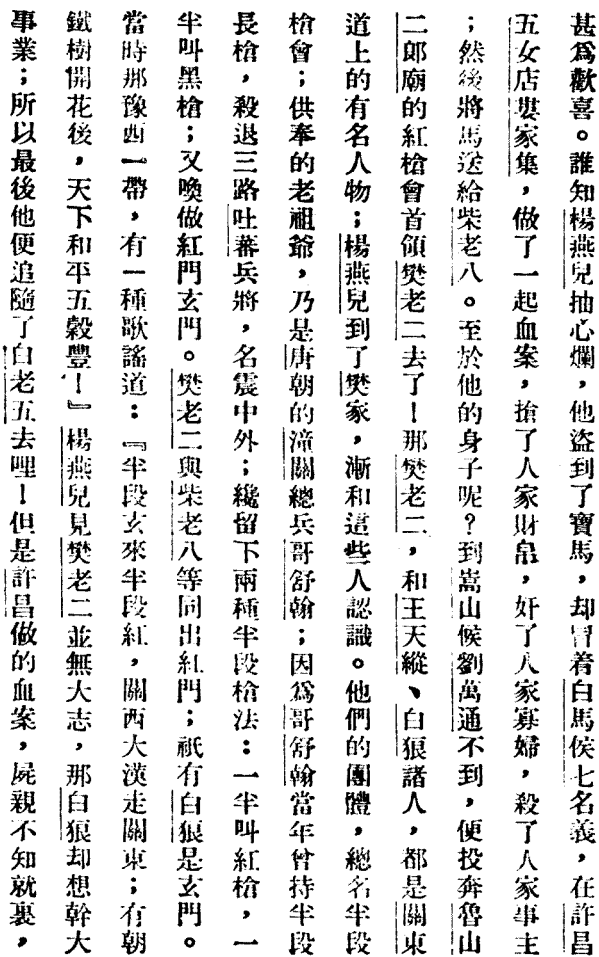 甚爲歡喜。誰知楊燕兒抽心爛，他盜到了寶馬，却冒着白馬侯七名義，在許昌
五女店婁家集，做了一起血案，搶了人家財帛，奸了人家寡婦，殺了人家事主
；然後將馬送給柴老八。至於他的身子呢？到嵩山候劉萬通不到，便投奔魯山
二郎廟的紅槍會首領樊老二去了！那樊老二，和王天縱、白狼諸人，都是關東
道上的有名人物；楊燕兒到了樊家，漸和這些人認識。他們的團體，總名半段
槍會；供奉的老祖爺，乃是唐朝的潼關總兵哥舒翰；因爲哥舒翰當年曾持半段
長槍，殺退三路吐蕃兵將，名震中外；纔留下兩種半段槍法：一半叫紅槍，一
半叫黑槍；又喚做紅門玄門。樊老二與柴老八等同出紅門；祇有白狼是玄門。
當時那豫西一帶，有一種歌謠道：『半段玄來半段紅，關西大漢走關東；有朝
鐵樹開花後，天下和平五穀豐！』楊燕兒見樊老二並無大志，那白狼却想幹大
事業；所以最後他便追隨了白老五去哩！但是許昌做的血案，屍親不知就裏，